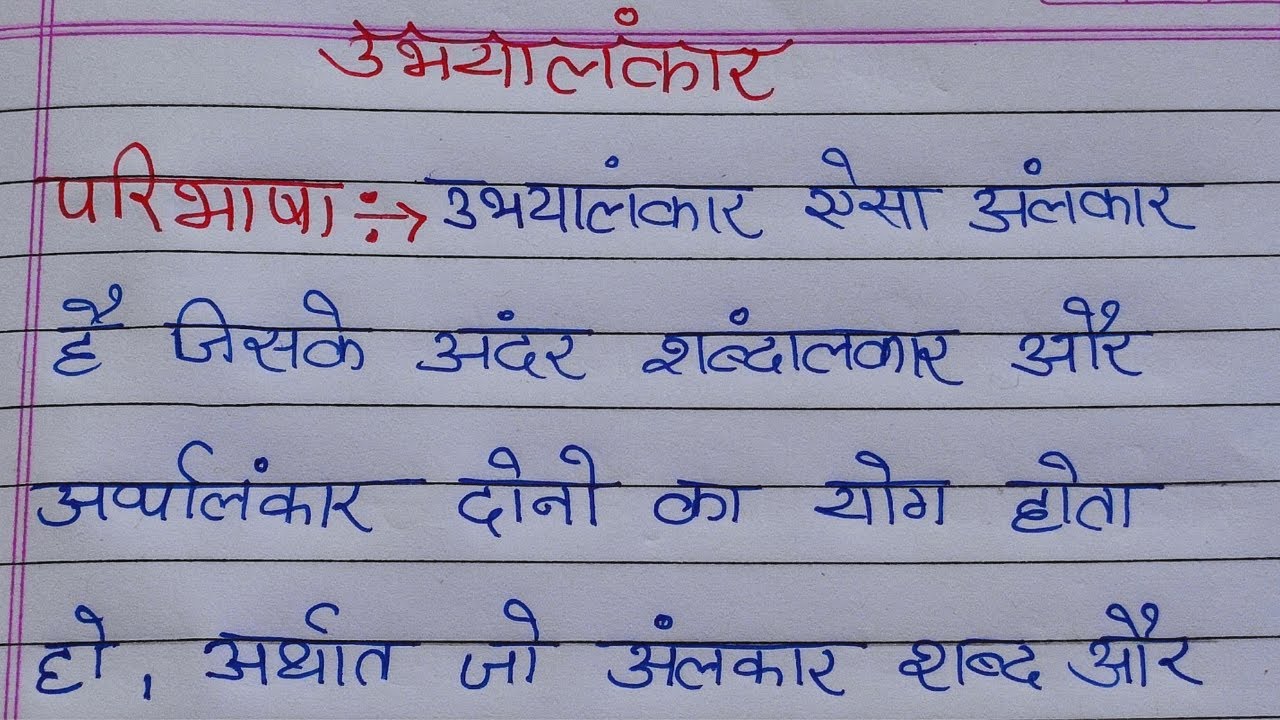 उभयालंकार
परिभाषा :→ उभयालंकार ऐसा अंलकार
है जिसके अंदर शब्दांलकार और
अर्थालंकार दोनो का योग होता
हो, अर्थात जो अंलकार शब्द और